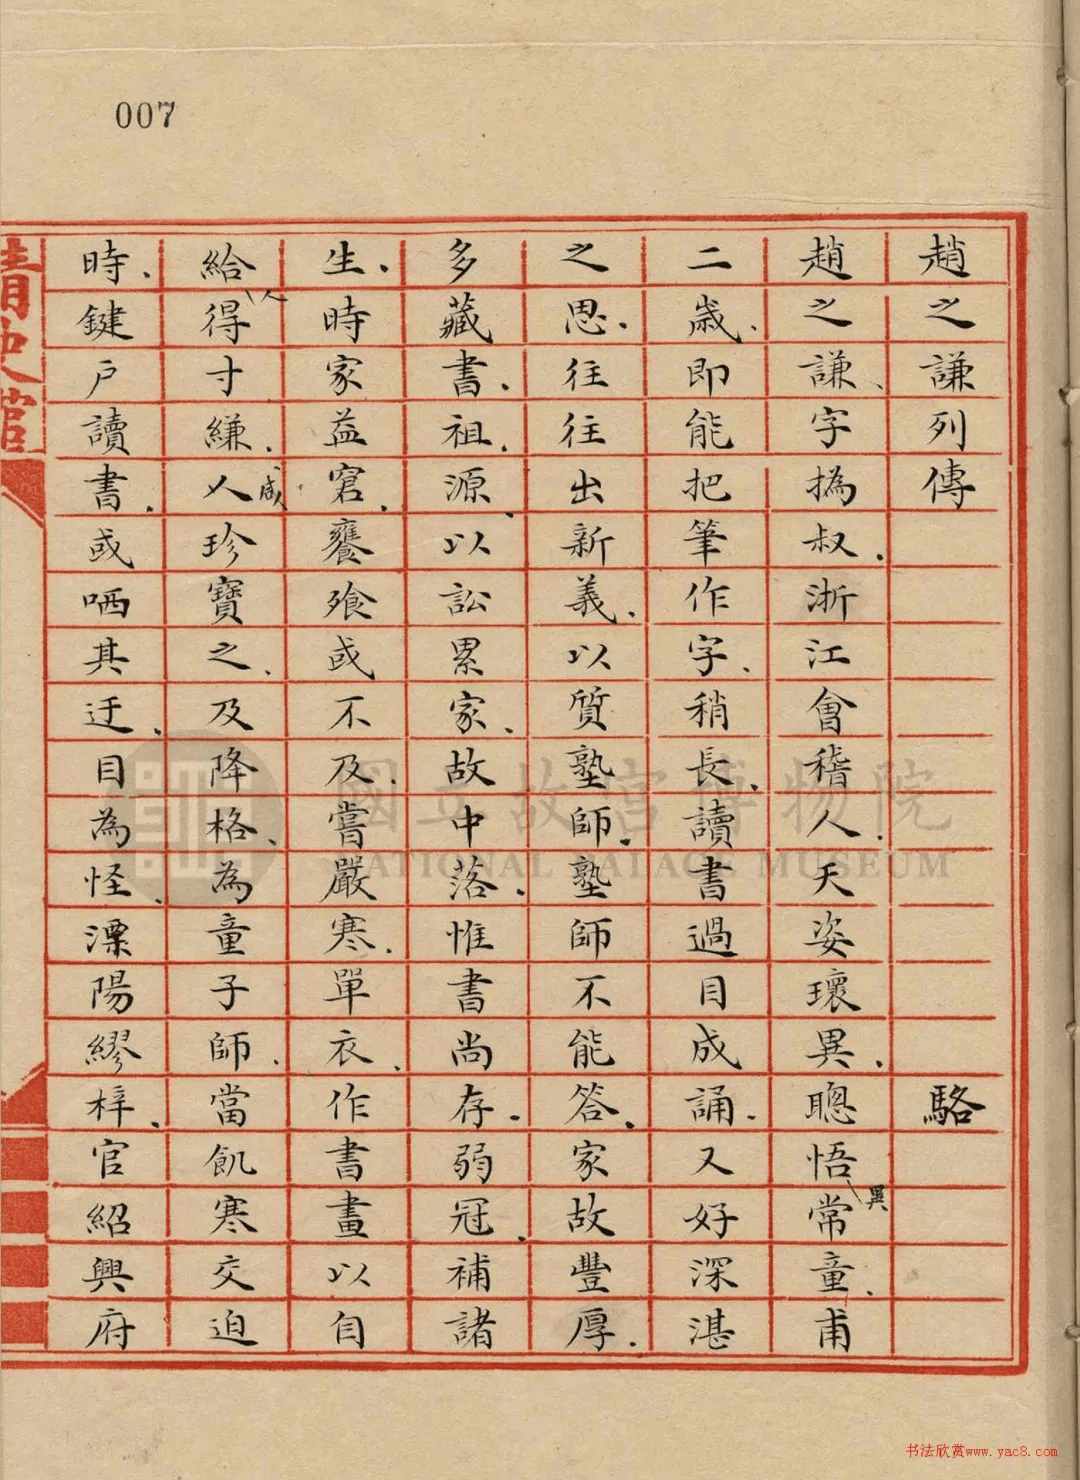 007
趙之謙列傳 駱
趙之謙、字撝叔.浙江會稽人.天姿瓌異.聰悟異常童.甫
二歲.即能把筆作字.稍長.讀書過目成誦.又好深湛
之思.往往出新義.以質塾師.塾師不能答.家故豐厚.
多藏書.祖.源.以訟累家.故中落.惟書尚存.弱冠.補諸
生.時家益窘.饔飱或不及.嘗嚴寒.單衣.作書畫以自
給.人得寸縑.人咸珍寶之.及降格.為童子師.當飢寒交迫
時.鍵戶讀書.或哂其迂.目為怪.溧陽繆梓.官紹興府
清史館
國立故宮博物院
NATIONAL PALACE MUSEUM
书法欣赏www.yac8.com